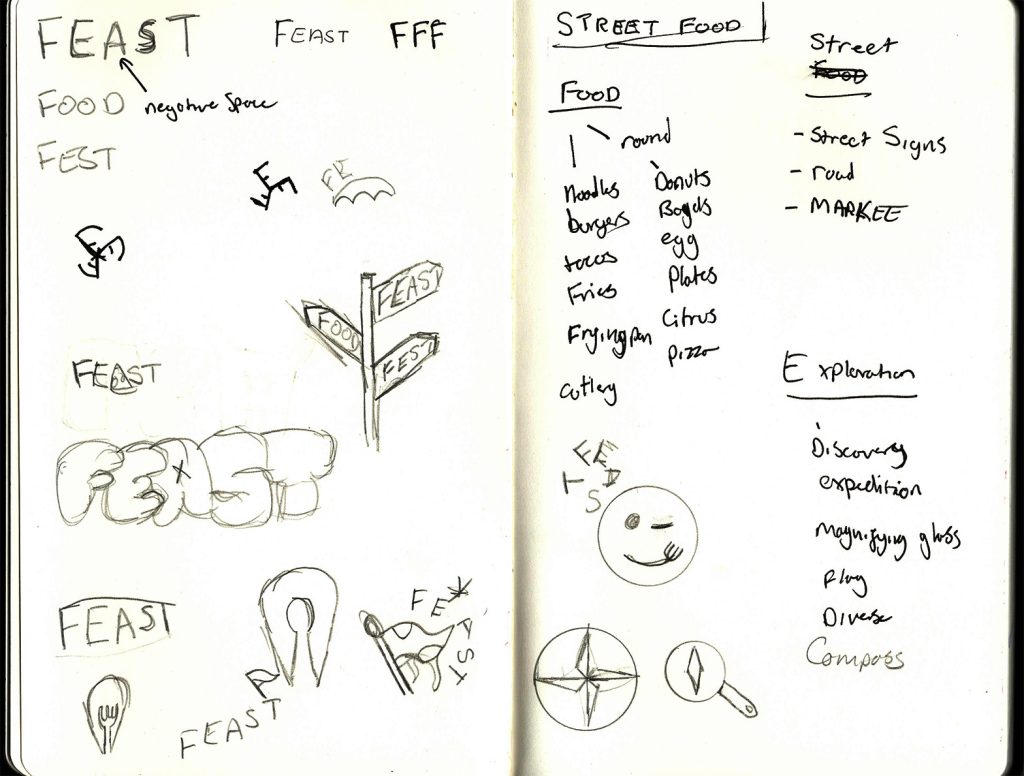 FEAST
FEAST
FFF
negative space
FOOD
FEST
FE
FEAST
FOOD
FEST
FEAST
FEAST
FEAST
FE
FEAST
STREET FOOD
FOOD
round
Noodles
burgers
tacos
Fries
Frying pan
cutlery
Donuts
Bagels
egg
Plates
Citrus
pizza
Street
FOOD
- Street Signs
- road
- MARKEE
Exploration
Discovery
expedition
Magnifying glass
Flag
Diverse
Compass
FE